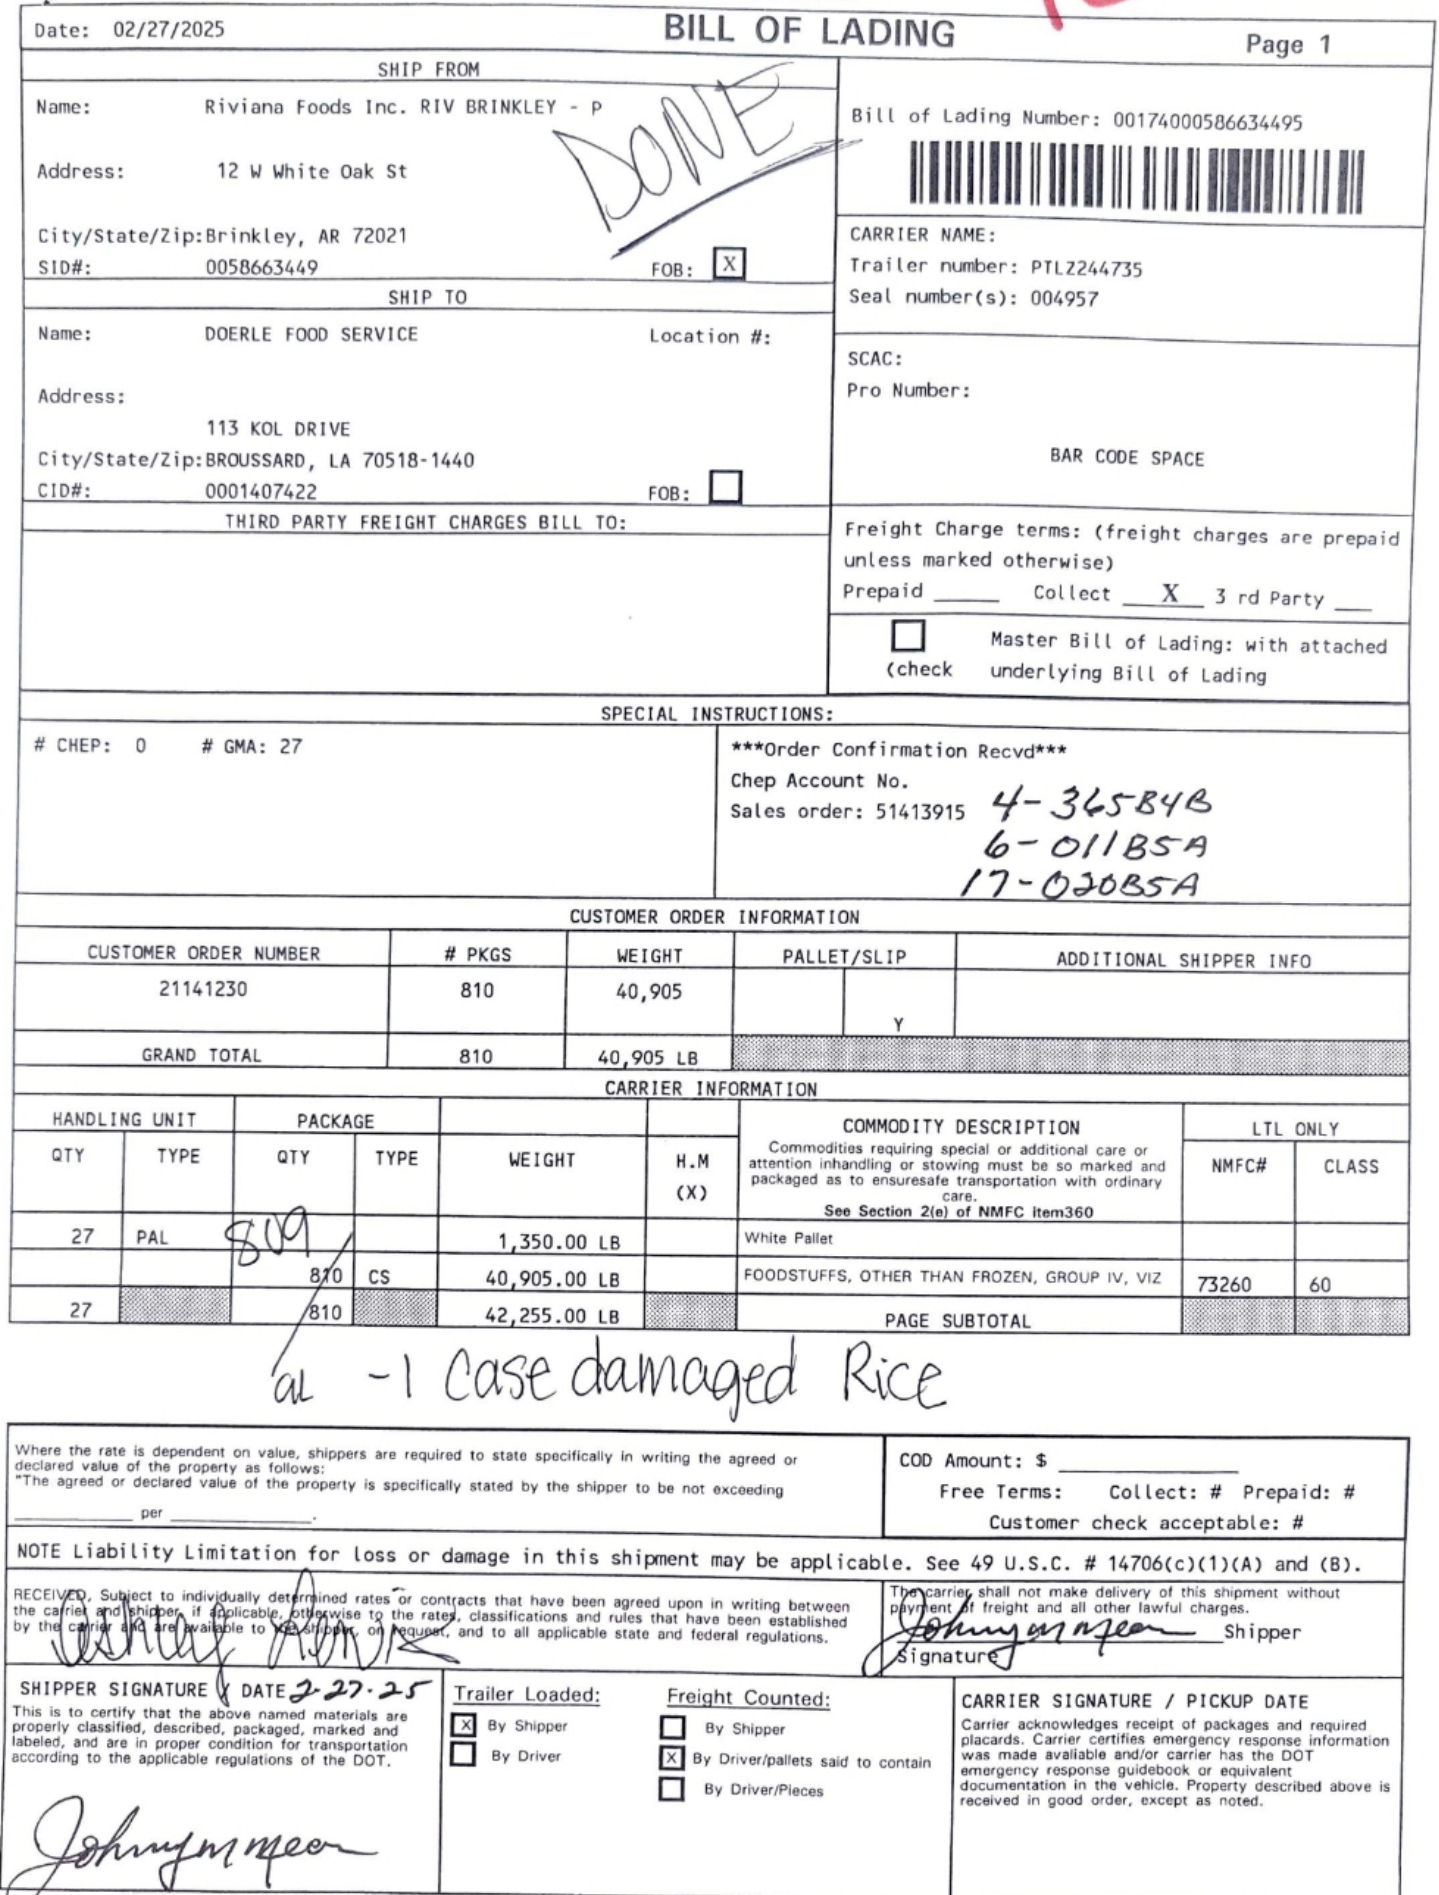 Date: 02/27/2025
BILL OF LADING
Page 1
SHIP FROM
Name: Riviana Foods Inc. RIV BRINKLEY - P
Address: 12 W White Oak St
City/State/Zip:Brinkley, AR 72021
SID#: 0058663449 FOB: X
DONE
Bill of Lading Number: 00174000586634495
CARRIER NAME:
Trailer number: PTLZ244735
Seal number(s): 004957
SHIP TO
Name: DOERLE FOOD SERVICE Location #:
Address:
113 KOL DRIVE
City/State/Zip:BROUSSARD, LA 70518-1440
CID#: 0001407422 FOB:
SCAC:
Pro Number:
BAR CODE SPACE
THIRD PARTY FREIGHT CHARGES BILL TO:
Freight Charge terms: (freight charges are prepaid
unless marked otherwise)
Prepaid _____ Collect __X__ 3 rd Party ___
Master Bill of Lading: with attached
(check underlying Bill of Lading
SPECIAL INSTRUCTIONS:
# CHEP: 0 # GMA: 27
***Order Confirmation Recvd***
Chep Account No.
Sales order: 51413915
4-365B4B
6-011B5A
17-020B5A
CUSTOMER ORDER INFORMATION
CUSTOMER ORDER NUMBER # PKGS WEIGHT PALLET/SLIP ADDITIONAL SHIPPER INFO
21141230 810 40,905
Y
GRAND TOTAL 810 40,905 LB
CARRIER INFORMATION
HANDLING UNIT PACKAGE COMMODITY DESCRIPTION LTL ONLY
QTY TYPE QTY TYPE WEIGHT H.M
(X)
Commodities requiring special or additional care or
attention inhandling or stowing must be so marked and
packaged as to ensuresafe transportation with ordinary
care.
See Section 2(e) of NMFC item360
NMFC# CLASS
27 PAL 809 1,350.00 LB White Pallet
810 CS 40,905.00 LB FOODSTUFFS, OTHER THAN FROZEN, GROUP IV, VIZ 73260 60
27 810 42,255.00 LB PAGE SUBTOTAL
-1 Case damaged Rice
Where the rate is dependent on value, shippers are required to state specifically in writing the agreed or
declared value of the property as follows:
"The agreed or declared value of the property is specifically stated by the shipper to be not exceeding
__________ per __________.
COD Amount: $ __________
Free Terms: Collect: # Prepaid: #
Customer check acceptable: #
NOTE Liability Limitation for loss or damage in this shipment may be applicable. See 49 U.S.C. # 14706(c)(1)(A) and (B).
RECEIVED, Subject to individually determined rates or contracts that have been agreed upon in writing between
the carrier and shipper, if applicable, otherwise to the rates, classifications and rules that have been established
by the carrier and are available to the shipper, on request, and to all applicable state and federal regulations.
Ashley
The carrier shall not make delivery of this shipment without
payment of freight and all other lawful charges.
Shipper
Signature
SHIPPER SIGNATURE / DATE 2-27-25
This is to certify that the above named materials are
properly classified, described, packaged, marked and
labeled, and are in proper condition for transportation
according to the applicable regulations of the DOT.
Trailer Loaded:
X By Shipper
By Driver
Freight Counted:
By Shipper
X By Driver/pallets said to contain
By Driver/Pieces
CARRIER SIGNATURE / PICKUP DATE
Carrier acknowledges receipt of packages and required
placards. Carrier certifies emergency response information
was made avaliable and/or carrier has the DOT
emergency response guidebook or equivalent
documentation in the vehicle. Property described above is
received in good order, except as noted.